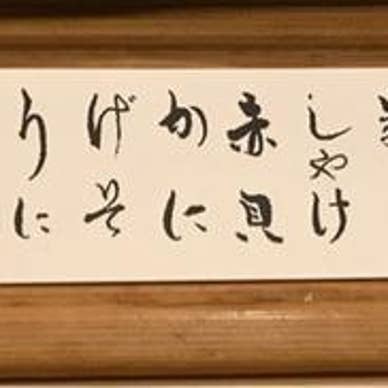 しゃけ
赤貝
かに
げそ
うに